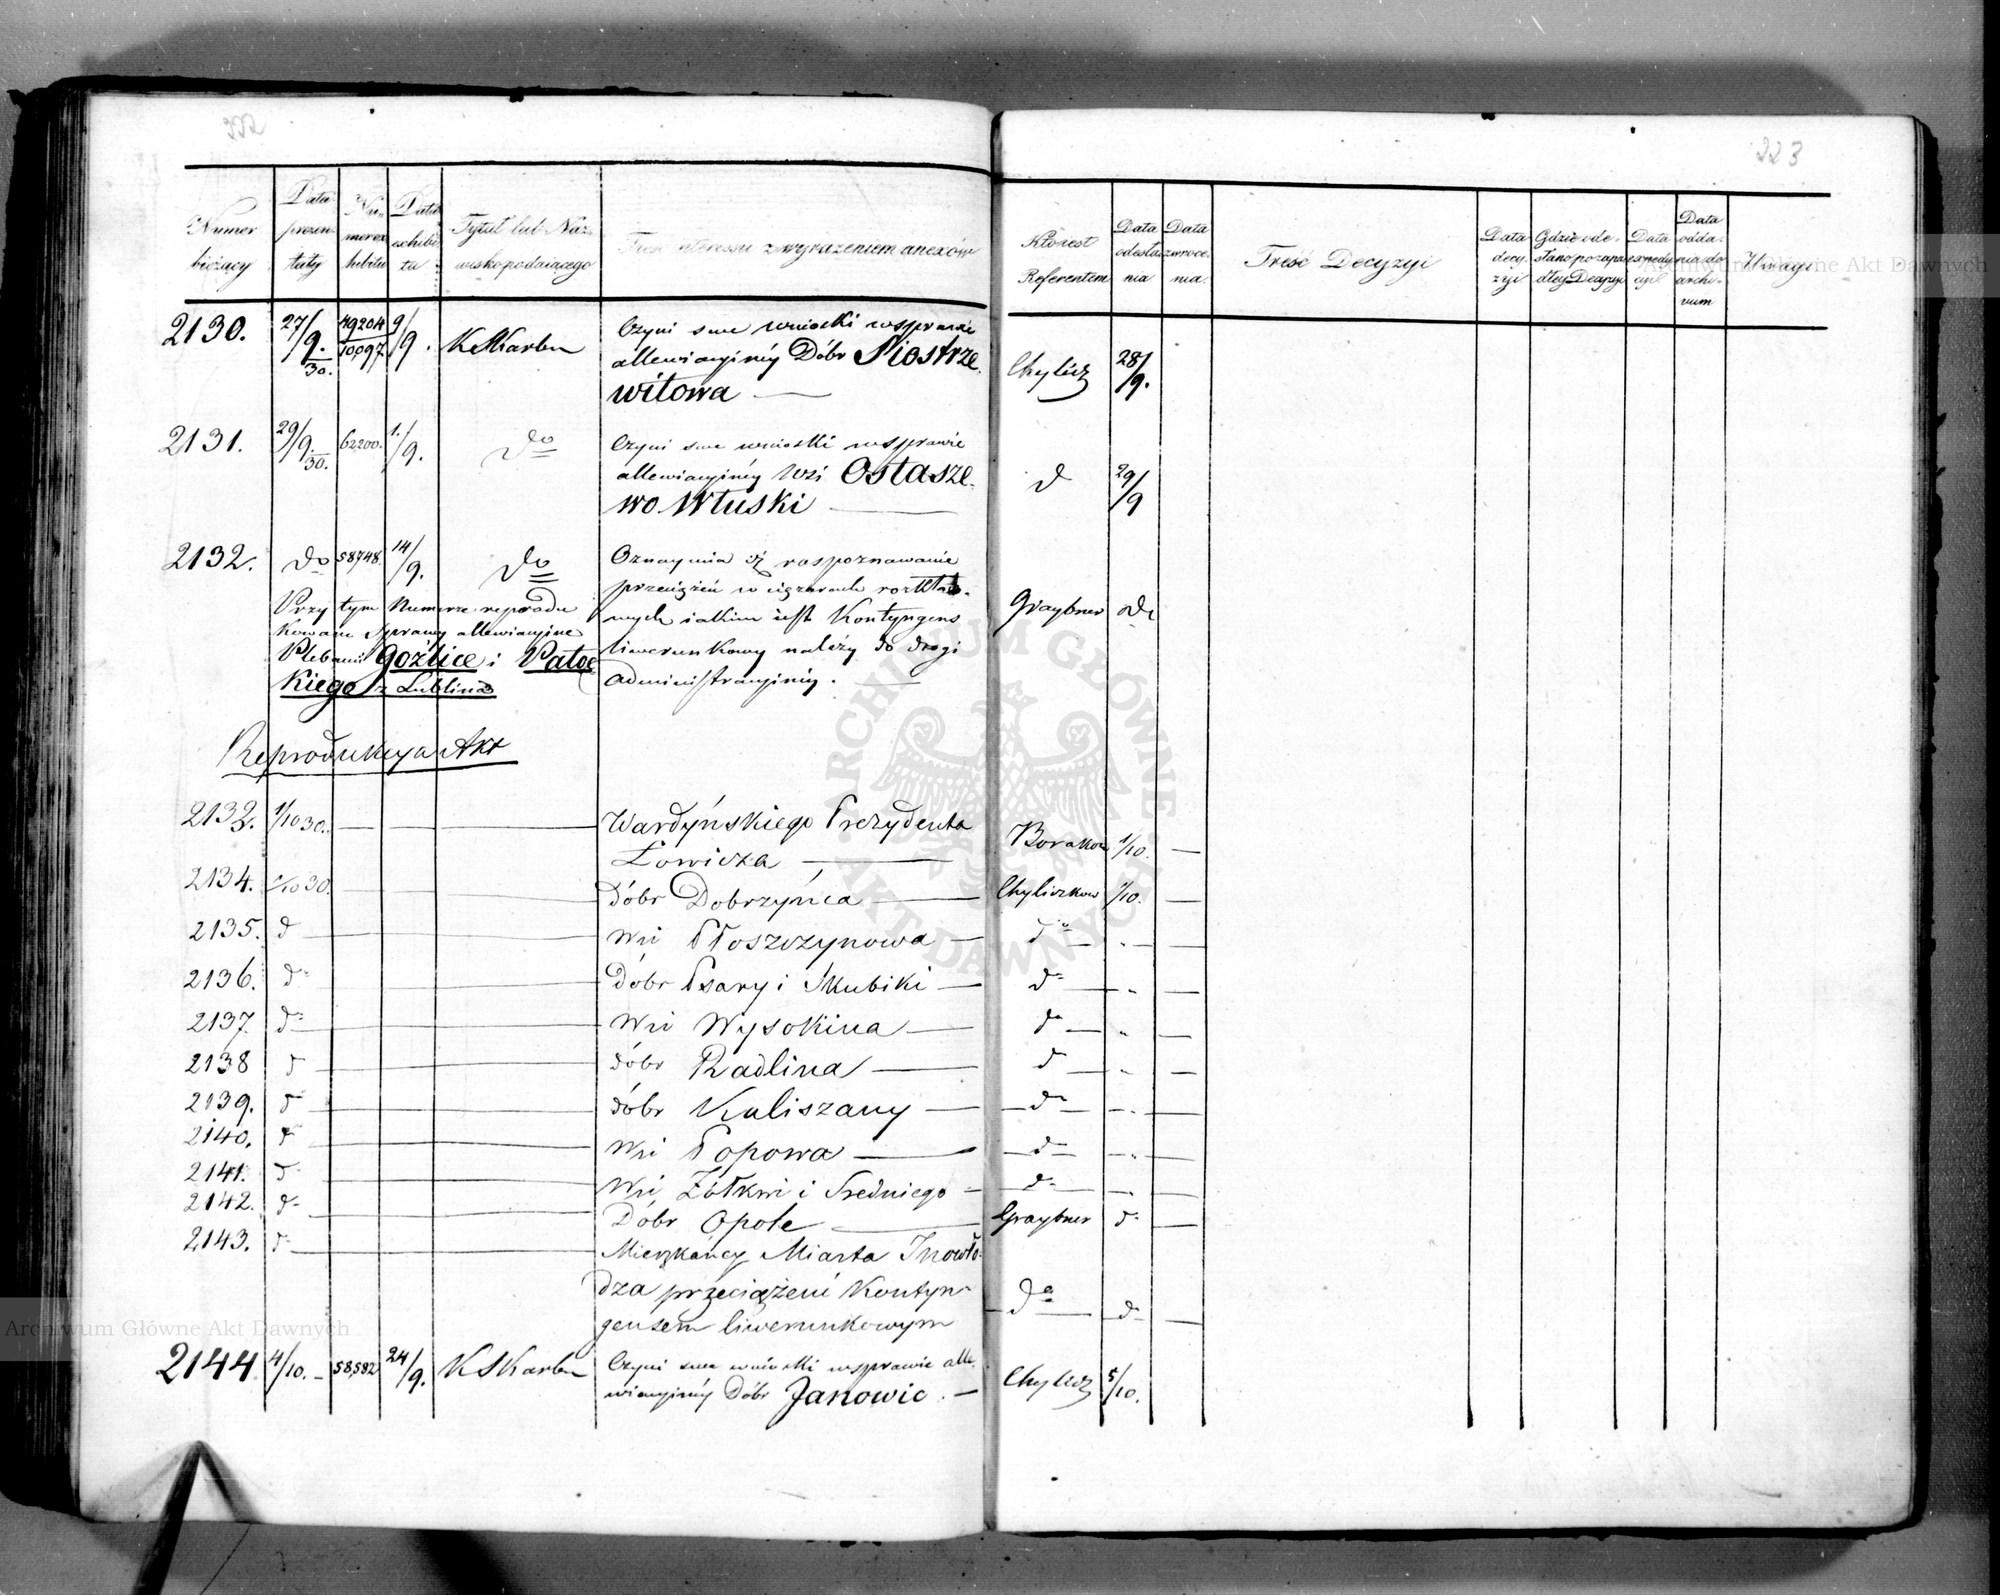 222
223
Numer bieżący
Data prezentaty
Numer exhibitu
Data exhibitu
Tytuł lub Nazwisko podaiącego
Treść interessu z wyrażeniem anexów
Ktoiest Referentem
Data odesłania
Data zwrocenia
Treść Decyzyi
Data decyzyi
Data expedycyi
Data oddania do archivum
Uwagi
2130. 27/9.30. 49204/10,097 9/9. KSKarbu Czyni swe wnioski wsprawie
allewiacyjnéy Dóbr Siostrze
witowa — Chylicz 28/9.
2131. 29/9.30. 62200. 1./9. do Czyni swe wnioski wsprawie
allewiacyjnéy Wsi Ostasze-
wo Wtuski — d 29/9
2132. do 58748. 14/9. do Oznaymia iż rospoznawanie
przeciążeń w ciężarach rozkłado-
Przy tym Numerze reprodu
kowane Sprawy allewiacyine
Plebanii Goźlice i Patoc
kiego z Lublina
wnych iakim iest Kontyngens
liwerunkowy należy do drogi
administracyjnéy. —
Graybner do
Reprodukcya Akt
2133. 1/10 30. — Wardyńskiego Prezydenta
Łowicza — Borakow 1/10. —
2134. 1/10 30. — dóbr Dobrzyńca — Chyliczkow 1/10. —
2135. d — Wsi Płoszczynowa — do — „ —
2136. d — Dóbr Psary i Skubiki — d — „ —
2137. d — Wsi Wysokina — do — „ —
2138 d — dóbr Radlina — d — „ —
2139. d — dóbr Kaliszany — d — „ —
2140. d — Wsi Popowa — d — „ —
2141. d — Wsi Żółkwi i Średniego — d — „ —
2142. d — Dóbr Opole — Graybner d —
2143. d — Mieszkańcy Miasta Inowło-
dza przeciążeni Kontyn-
gensem liwerunkowym
do — d —
2144 4/10. — 58,582 24/9. KSKarbu Czyni swe wnioski wsprawie alle-
wiacyjnéy Dóbr Janowic. — Chylicz 5/10.
ARCHIWUM GŁÓWNE AKT DAWNYCH
Archiwum Główne Akt Dawnych
Archiwum Główne Akt Dawnych